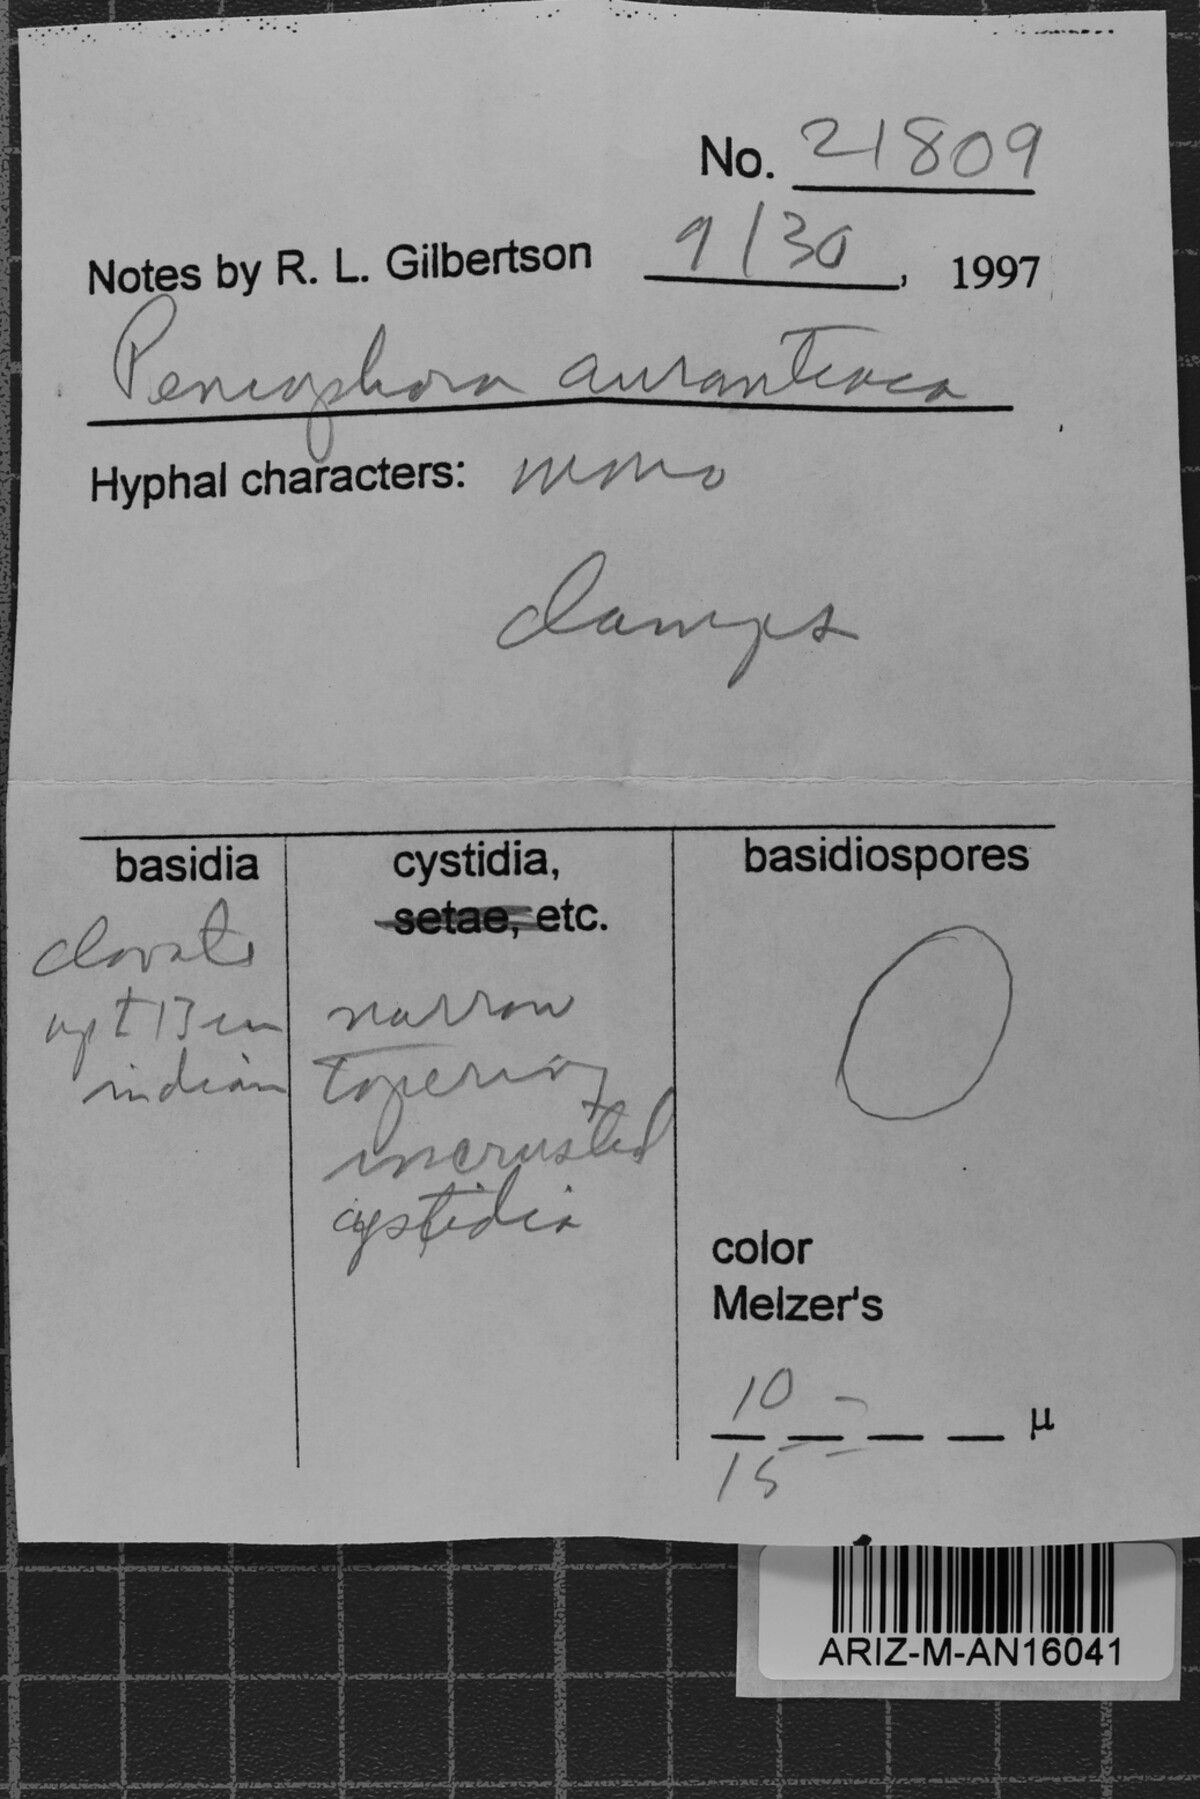 No. 21809
Notes by R. L. Gilbertson 9/30, 1997
Peniophora aurantiaca
Hyphal characters: mono
clamps
basidia
clavate
up t 13 um
in diam
cystidia,
setae, etc.
narrow
tapering
incrusted
cystidia
basidiospores
color
Melzer's
10 -
_ _ _ _ µ
15 - -
ARIZ-M-AN16041